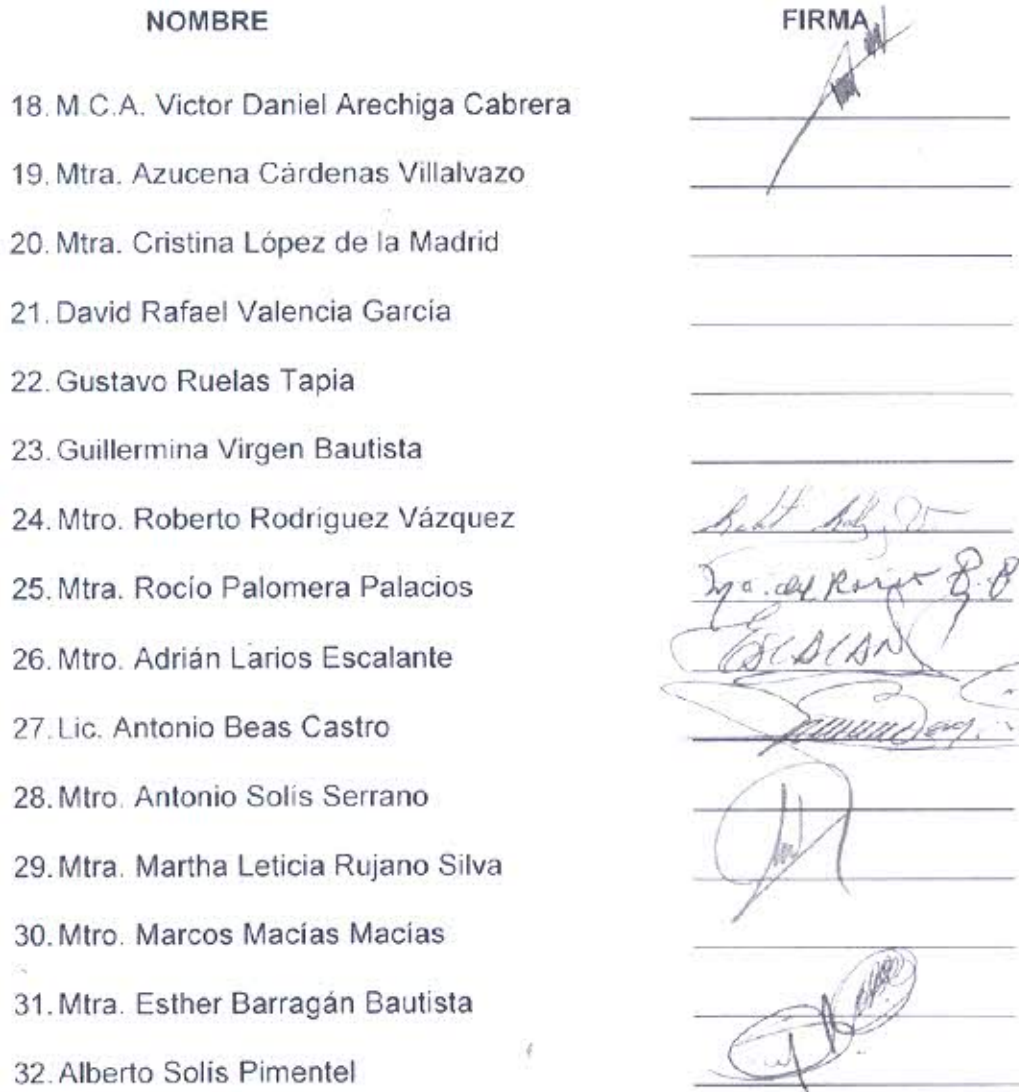 NOMBRE FIRMA
18. M.C.A. Victor Daniel Arechiga Cabrera
19. Mtra. Azucena Cárdenas Villalvazo
20. Mtra. Cristina López de la Madrid
21. David Rafael Valencia García
22. Gustavo Ruelas Tapia
23. Guillermina Virgen Bautista
24. Mtro. Roberto Rodríguez Vázquez
25. Mtra. Rocío Palomera Palacios
26. Mtro. Adrián Larios Escalante
27. Lic. Antonio Beas Castro
28. Mtro. Antonio Solís Serrano
29. Mtra. Martha Leticia Rujano Silva
30. Mtro. Marcos Macías Macías
31. Mtra. Esther Barragán Bautista
32. Alberto Solís Pimentel